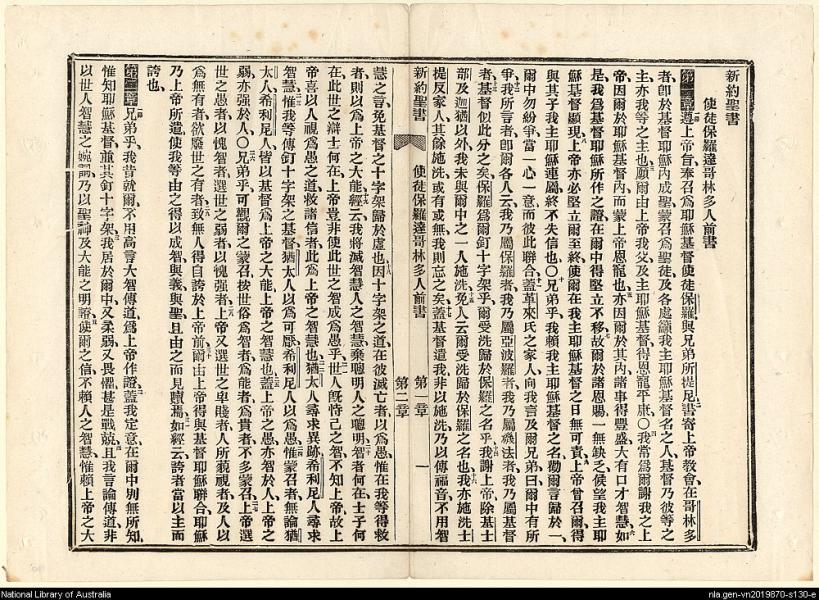 新約聖書
使徒保羅達哥林多人前書
第一章遵上帝旨奉召爲耶穌基督使徒保羅與兄弟所提尼書寄上帝教會在哥林多
者卽於基督耶穌內成聖蒙召爲聖徒及各處籲我主耶穌基督名之人基督乃彼等之
主亦我等之主也願爾由上帝我父及主耶穌基督得恩寵平康〇我常爲爾謝我之上
帝因爾於耶穌基督內而蒙上帝恩寵也亦因爾於其內諸事得豐盛大有口才智慧如
是我爲基督耶穌所作之證在爾中得堅立不移故爾於諸恩賜一無缺乏候望我主耶
穌基督顯現上帝亦必堅立爾至終使爾在我主耶穌基督之日無可責上帝曾召爾得
與其子我主耶穌連屬終不失信也〇兄弟乎我賴我主耶穌基督之名勸爾言歸於一
爾中勿紛爭當一心一意而彼此聯合蓋革來氏之家人向我言及爾兄弟曰爾中有所
爭我所言者卽爾各人云我乃屬保羅者我乃屬亞波羅者我乃屬磯法者我乃屬基督
者基督似此分之矣保羅爲爾釘十字架乎爾受洗歸於保羅之名乎我謝上帝除基士
部及迦猶以外我未與爾中之一人施洗免人云爾受洗歸於保羅之名也我亦施洗士
提反家人其餘施洗或有或無我則忘之矣蓋基督遣我非以施洗乃以傳福音不用智
新約聖書 使徒保羅達哥林多人前書 第一章 第二章 一
慧之言免基督之十字架歸於虛也因十字架之道在彼滅亡者以爲愚惟在我等得救
者則以爲上帝之大能經云我將滅智慧人之智慧棄聰明人之聰明智者何在士子何
在此世之辯士何在上帝豈非使此世之智成爲愚乎世人旣恃己之智不知上帝故上
帝喜以人視爲愚之道救諸信者此爲上帝之智慧也猶太人尋求異跡希利尼人尋求
智慧惟我等傳釘十字架之基督猶太人以爲可厭希利尼人以爲愚惟蒙召者無論猶
太人希利尼人皆以基督爲上帝之大能上帝之智慧也蓋上帝之愚亦智於人上帝之
弱亦强於人〇兄弟乎可觀爾之蒙召按世俗爲智者爲能者爲貴者不多蒙召上帝選
世之愚者以愧智者選世之弱者以愧强者上帝又選世之卑賤者人所藐視者及人以
爲無有者欲廢世之有者致無人得自誇於上帝前爾由上帝得與基督耶穌聯合耶穌
乃上帝所遣使我等由之得以成智與義與聖且由之而見贖焉如經云誇者當以主而
誇也
第二章兄弟乎我昔就爾不用高言大智傳道爲上帝作證蓋我定意在爾中別無所知
惟知耶穌基督並其釘十字架我居於爾中又柔弱又畏懼甚是戰兢且我言論傳道非
以世人智慧之婉言乃以聖神及大能之明證使爾之信不賴人之智慧惟賴上帝之大
National Library of Australia
nla.gen-vn2019870-s130-e